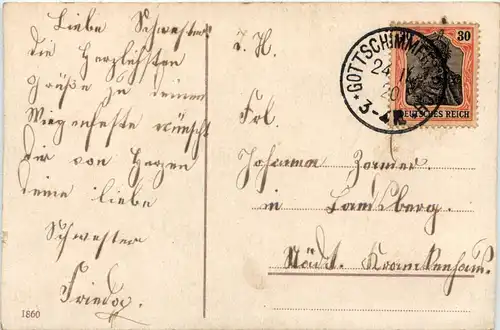 Liebe Schwester
die Herzlichsten
Grüße zu deinem
Wiegenfeste wünscht
dir von Herzen
deine liebe
Schwester
Frieda.
1860
z. H.
Frl.
Johanna
in Landsberg.
Städt. Krankenhaus.
30
DEUTSCHES REICH
24
20
3-4